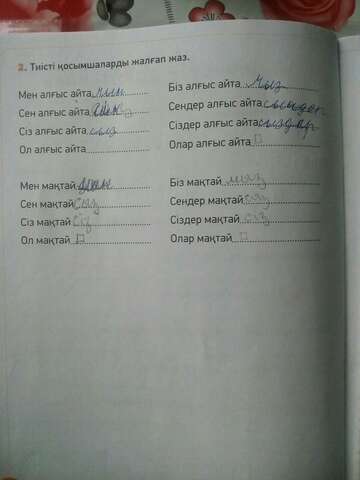 2. Тиісті қосымшаларды жалғап жаз.
Мен алғыс айта мын
Сен алғыс айта
Сіз алғыс айта сыз
Ол алғыс айта
Біз алғыс айта мыз
Сендер алғыс айта сыңдар
Сіздер алғыс айта сыздар
Олар алғыс айта
Мен мақтай
Сен мақтай
Сіз мақтай сіз
Ол мақтай
Біз мақтай
Сендер мақтай
Сіздер мақтай сіз
Олар мақтай